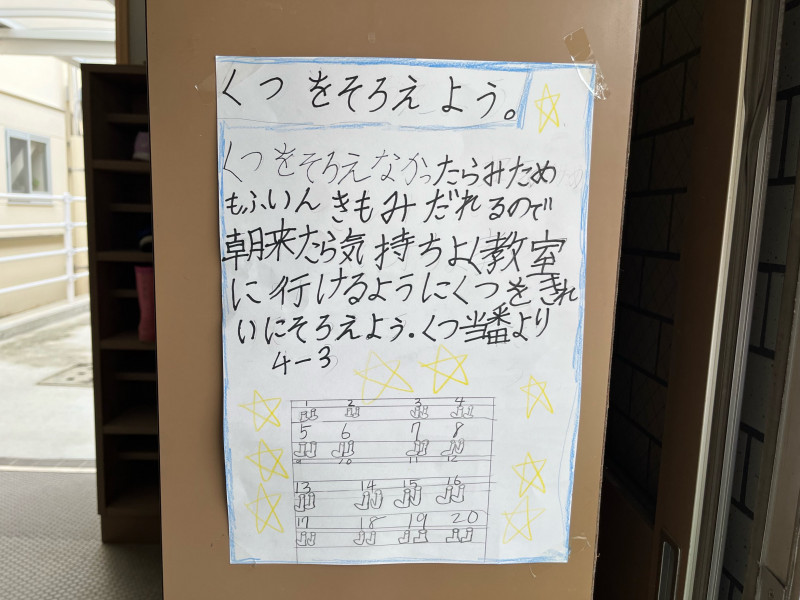 くつをそろえよう。
くつをそろえなかったらみため
もふいんきもみだれるので
朝来たら気持ちよく教室
に行けるようにくつをきれ
いにそろえよう.くつ当番より
4-3
1 2 3 4
5 6 7 8
9 10 11 12
13 14 15 16
17 18 19 20